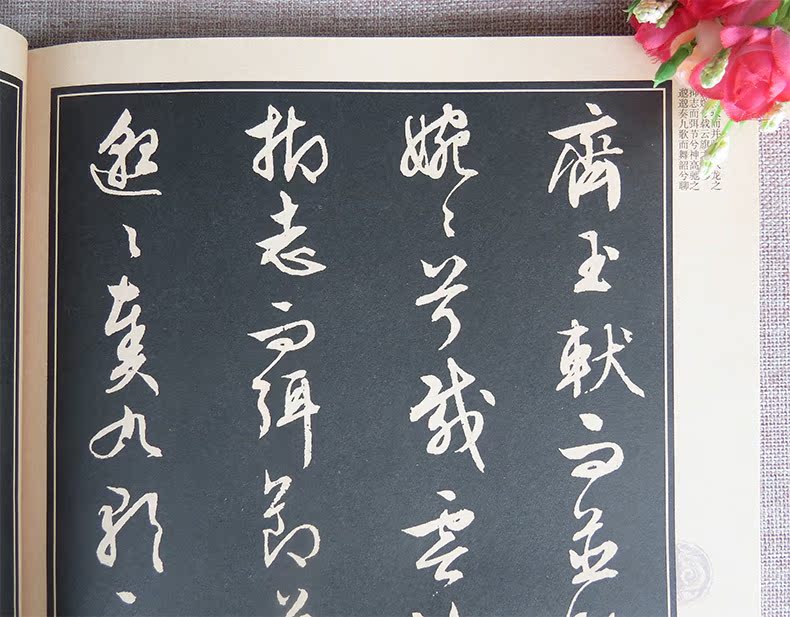 齊玉軑而並
婉〻兮載雲
抑志而弭節
邈〻奏九歌
而并 龙之
载云旗
抑志而弭节兮神高驰之
邈邈奏九歌而舞韶兮聊